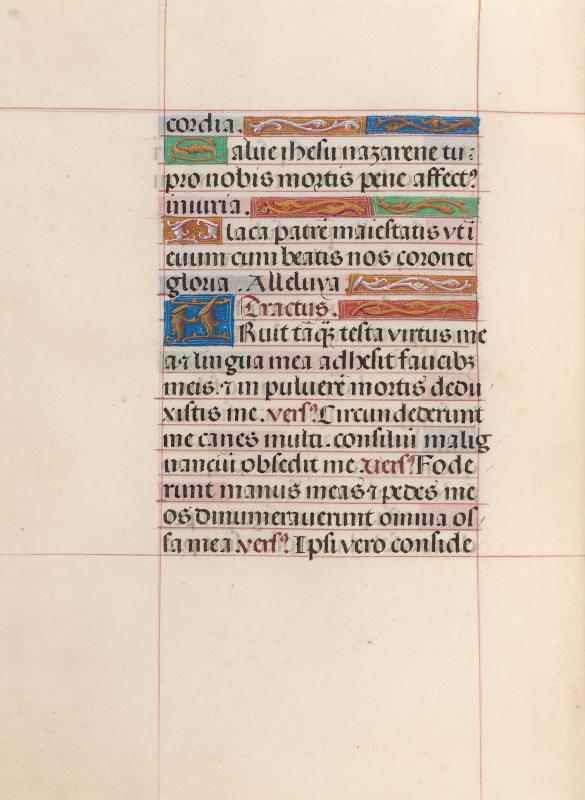 cordia.
Salue ihesu nazarene tu:
pro nobis mortis pene affectꝰ
iniuria.
Placa patrē maiestatis vt i
euum cum beatis nos coronet
gloria. Alleluya
Tractus.
ARuit tāqȝ testa virtus me
a ⁊ lingua mea adhesit faucibȝ
meis. ⁊ in puluerē mortis dedu
xistis me. versꝰ Circundederunt
me canes multi. consilium malig
nanciū obsedit me. versꝰ Fode
runt manus meas ⁊ pedes me
os dinumerauerunt omnia os
sa mea. versꝰ Ipsi vero conside